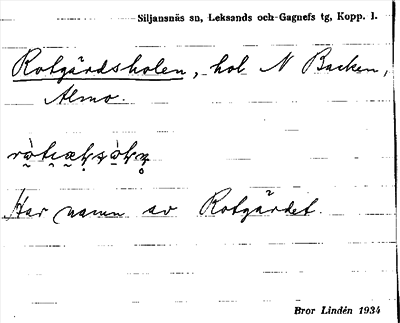 Siljansnäs sn, Leksands och Gagnefs tg, Kopp. l.
Rotgårdsholen, hol N Backen,
Almo.
Har namn av Rotgårdet.
Bror Lindén 1934